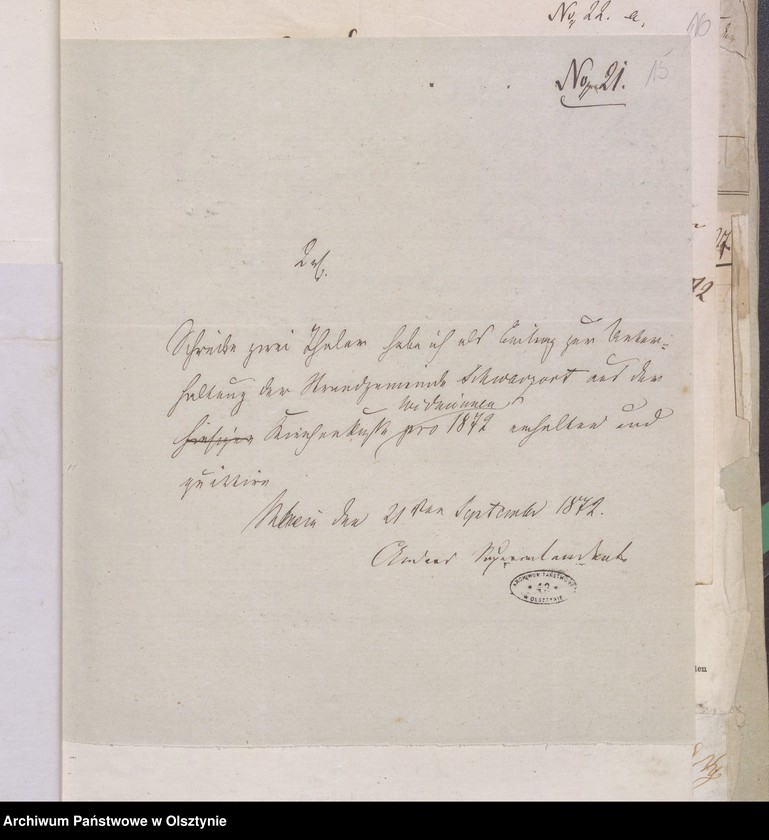 No 22. a.
16
No 21.
15
2 rt.
Schreibe zwei Thaler habe ich als Beitrag zur Unter-
haltung der Strandgemeinde Schwarzort aus der
Widminnen
hiesigen Kirchenkasse pro 1872 erhalten und
quittire
Rhein den 21 ten September 1872.
Superintendent
ARCHIWUM PAŃSTWOWE
W OLSZTYNIE
ten
Archiwum Państwowe w Olsztynie